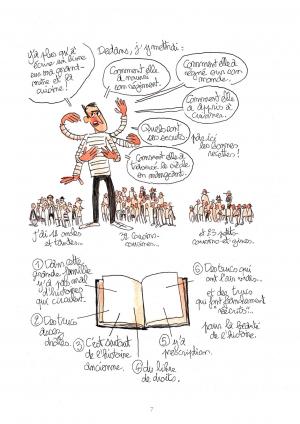 y'a plus qu'à
écrire un livre
sur ma grand-
mère et la
cuisine!
Dedans, j'y mettrai:
Comment elle
a nourri
son régiment.
Comment elle a
régné sur son
monde.
Comment elle
a appris à
cuisiner.
Quels sont
ses secrets.
Comment elle a
en mangeant.
les bonnes
recettes!
J'ai 12 oncles
et tantes...
32 cousins-
cousines...
et 25 petits
cousins et
① Dans cette
grande famille
y'a pas mal
d'histoires
qui circulent.
② Des trucs
assez
drôles.
③ C'est surtout
de l'histoire
ancienne.
④ du libre
de droits.
⑤ y'a
prescription.
⑥ Des trucs qui
ont l'air vrais...
... et des
trucs
qui ont franchement
"réécrits"...
pour la beauté
de l'histoire.
7